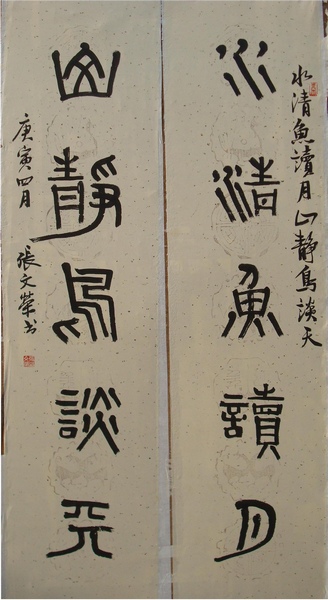 水清魚讀月山靜鳥談天
水清魚讀月
山靜鳥談天
庚寅四月
張文榮书